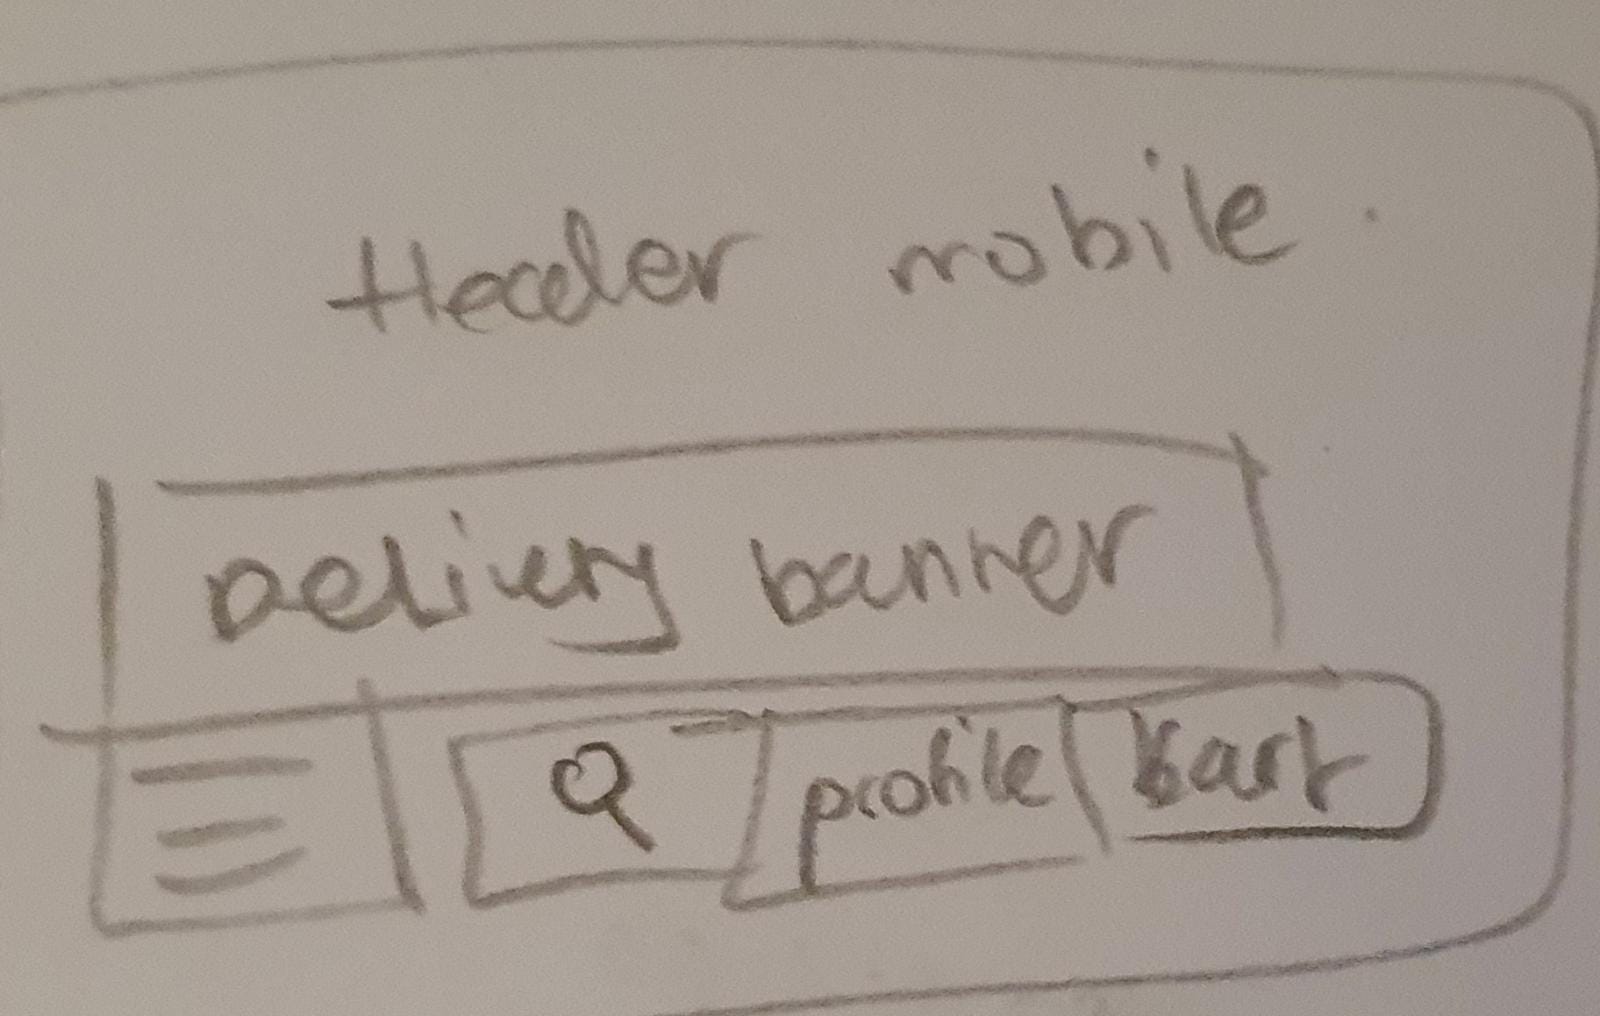 Header mobile
Delivery banner
profile